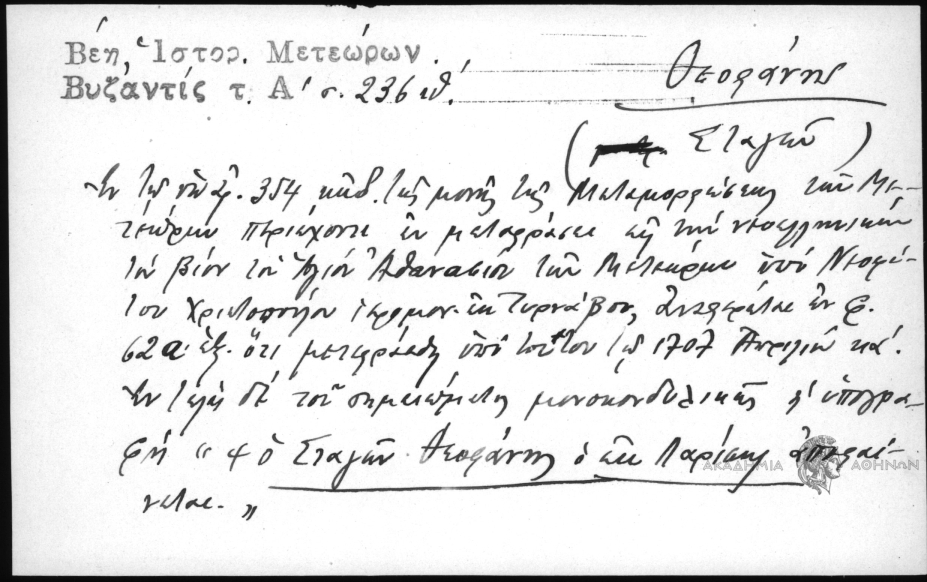 Βέη, Ἱστορ. Μετεώρων.
Βυζάντίς τ. Α' σ. 236 ιθ'.
Θεοφάνης
( Σταγῶν )
Ἐν τῷ ὑπ' ἀρ. 354 κώδ. τῆς μονῆς τῆς Μεταμορφώσεως τῶν Με-
τεώρων περιέχοντι ἐν μεταφράσει εἰς τὴν νεοελληνικὴν
τὸν βίον τοῦ Ἁγίου Ἀθανασίου τῶν Μετεώρων ὑπὸ Νεοφύ-
του Χριστοπούλου ἱερομον. ἐκ Τυρνάβου, ἀναφέρεται ἐν φ.
62α ἑξ. ὅτι μετεφράσθη ὑπὸ τούτου τῷ 1707 Ἀπριλίου κά.
Ἐν τέλει δὲ τοῦ σημειώματος μονοκονδυλικῆς ἡ ὑπογρα-
φή " + ὁ Σταγῶν Θεοφάνης ὁ ἐκ Λαρίσης ἀποφαί-
νεται. "
ΑΚΑΔΗΜΙΑ ΑΘΗΝΩΝ